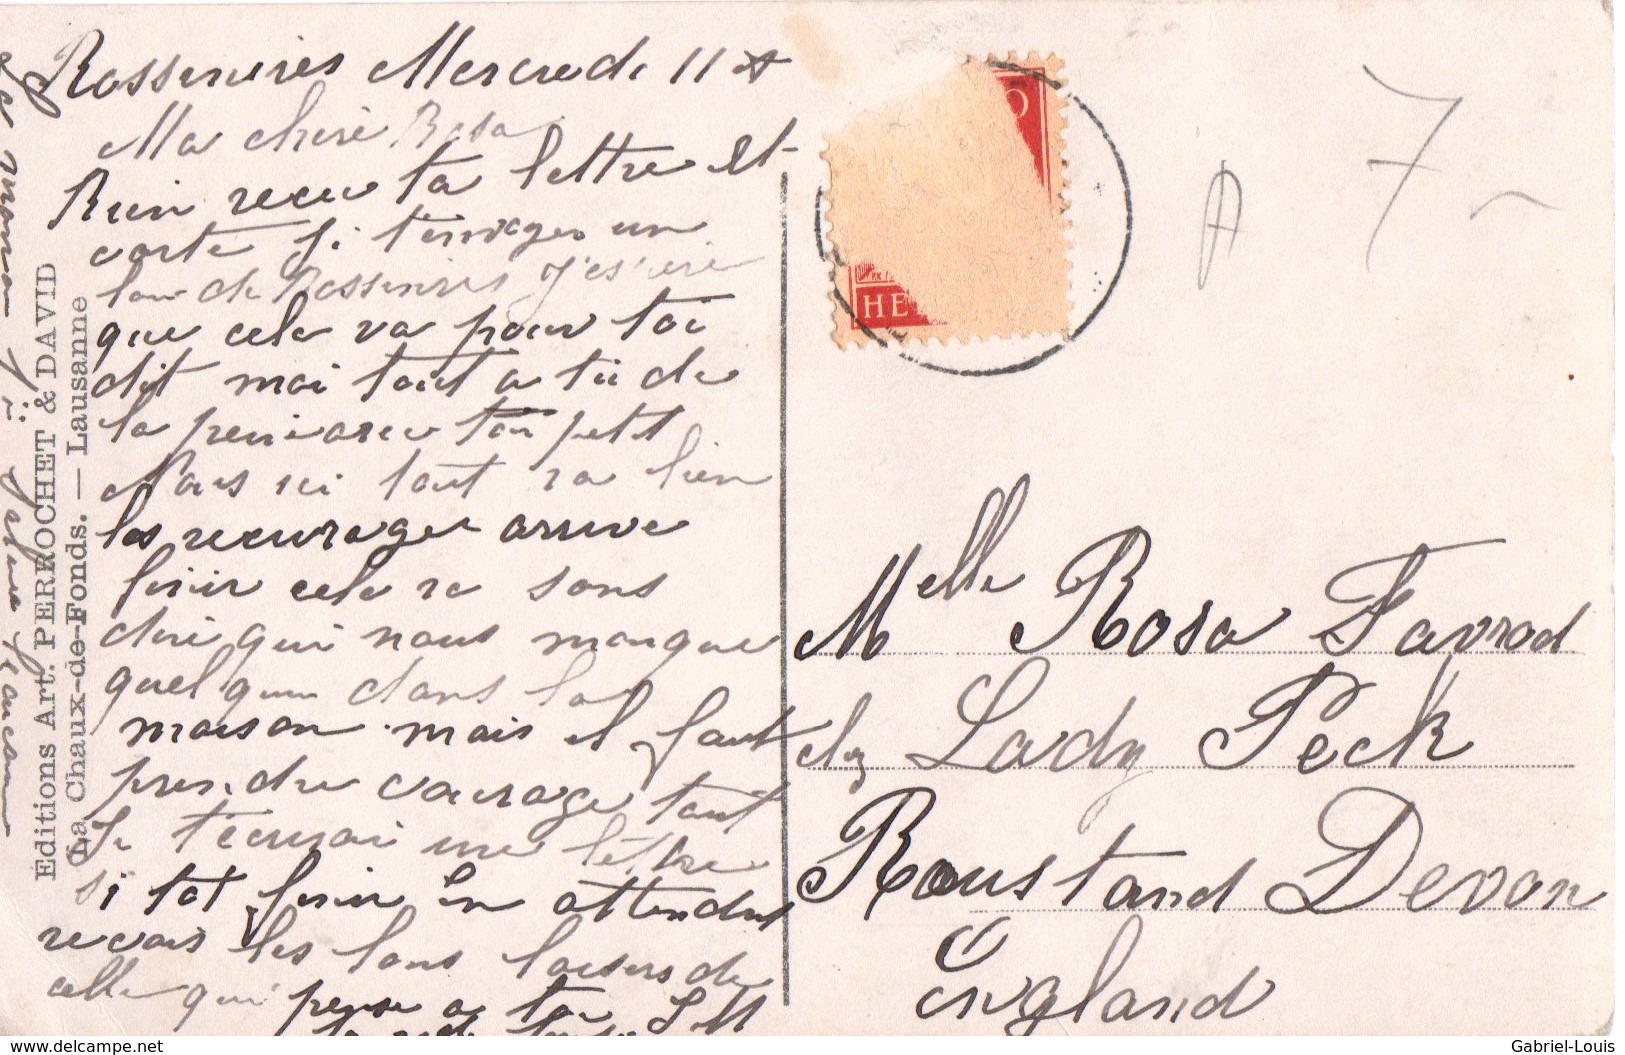 Rossinières Mercredi 11
Ma chère Rosa
Bien recu ta lettre et
carte Je t'envoyes un
de Rossinières J'espère
que cela va pour toi
dit moi tout a tu de
la ton petit
Nous ici tout va bien
les arrive
finir cela re sans
dire qui nous manque
quelqun dans la
maison mais il faut
prendre courage tout
Je t'écrirai une lettre
si tot finir En attendent
recois les bons baisers de
celle qui pense a toi
Editions Art. PERROCHET & DAVID
La Chaux-de-Fonds. — Lausanne
HE
Melle Rosa Favrod
chez Lady Peck
Rousdand Devon
England
A
7
delcampe.net
Gabriel-Louis